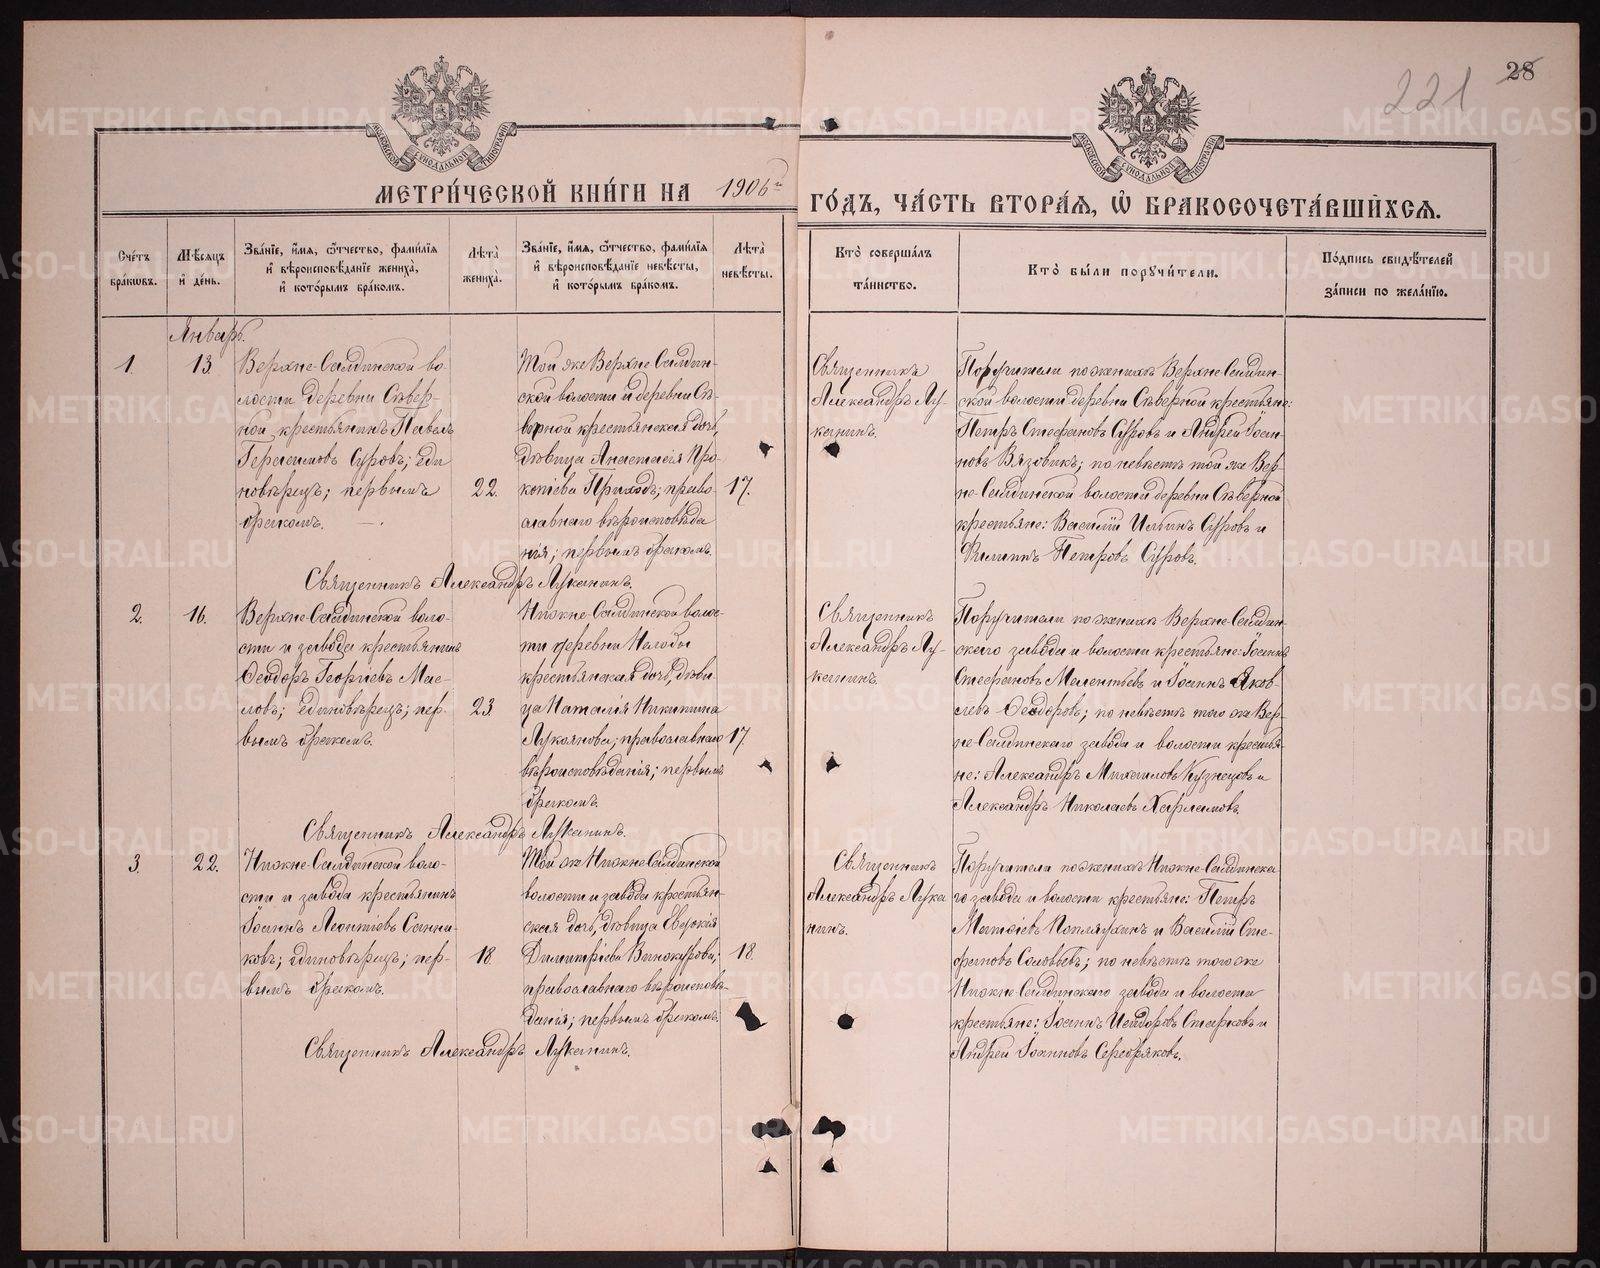 221 28
МЕТРИ́ЧЕСКОЙ КНИ́ГИ НА 1906й ГО́ДЪ, ЧА́СТЬ ВТОРА́Я, Ѡ҆ БРАКОСОЧЕТА́ВШИХСЯ.
Сче́тъ бра́кѡвъ.
Мѣ́сяцъ и҆ де́нь.
Зва́нїе, и҆́мя, ѻ҆́тчество, фами́лїя
и҆ вѣроисповѣ́данїе жениха̀,
и҆ кото́рымъ бра́комъ.
Лѣта̀ жениха̀.
Зва́нїе, и҆́мя, ѻ҆́тчество, фами́лїя
и҆ вѣроисповѣ́данїе невѣ́сты,
и҆ кото́рымъ бра́комъ.
Лѣта̀ невѣ́сты.
Кто̀ соверша́лъ
та́инство.
Кто̀ бы́ли порꙋчи́тели.
По́дпись свидѣ́телей
за́писи по жела́нїю.
Январь.
1. 13
Верхне-Салдинской во-
лости деревни Сѣвер-
ной крестьянинъ Павелъ
Герасимовъ Суровъ; еди
новѣрецъ; первымъ
бракомъ.
22.
Той же Верхне-Салдин-
ской волости и деревни Сѣ-
верной крестьянская дочь,
дѣвица Анастасія Про-
копіева Приходъ; право-
славнаго вѣроисповѣда
нія; первымъ бракомъ.
17.
Священникъ
Александръ Лу-
канинъ.
Поручители по женихѣ Верхне-Салдин-
ской волости деревни Сѣверной крестьяне:
Петръ Стефановъ Суровъ и Андрей Іоан-
новъ Вязовикъ; по невѣстѣ той же Вер-
не-Салдинской волости деревни Сѣверной
крестьяне: Василій Ильинъ Суровъ и
Филиппъ Петровъ Суровъ.
Священникъ Александръ Луканинъ.
2. 16.
Верхне-Салдинской воло-
сти и завода крестьянинъ
Ѳеодоръ Георгіевъ Мас-
ловъ; единовѣрецъ; пер-
вымъ бракомъ.
23
Нижне-Салдинской волос-
ти деревни Нелобы
крестьянская дочь, дѣви-
ца Наталія Никитина
Лукоянова; православнаго
вѣроисповѣданія; первымъ
бракомъ.
17.
Священникъ
Александръ Лу-
канинъ.
Поручители по женихѣ Верхне-Салдин-
скаго завода и волости крестьяне: Іоаннъ
Стефановъ Мелентьевъ и Іоаннъ Яков-
левъ Ѳеодоровъ; по невѣстѣ того же Вер-
не-Салдинскаго завода и волости крестья-
не: Александръ Михаиловъ Кузнецовъ и
Александръ Николаевъ Харламовъ.
Священникъ Александръ Луканинъ.
3. 22.
Нижне-Салдинской воло-
сти и завода крестьянинъ
Іоаннъ Леонтіевъ Санни-
ковъ; единовѣрецъ; пер-
вымъ бракомъ.
18
Той же Нижне-Салдинской
волости и завода крестьян-
ская дочь, дѣвица Евдокія
Димитріева Винокурова;
православнаго вѣроисповѣ-
данія; первымъ бракомъ.
18.
Священникъ
Александръ Лука
нинъ.
Поручители по женихѣ Нижне-Салдинска
го завода и волости крестьяне: Петръ
Матѳіевъ Поплаухинъ и Василій Сте-
фановъ Соловьевъ; по невѣстѣ того же
Нижне-Салдинскаго завода и волости
крестьяне: Іоаннъ Исидоровъ Старковъ и
Андрей Іоанновъ Серебряковъ.
Священникъ Александръ Луканинъ.
METRIKI.GASO-URAL.RU